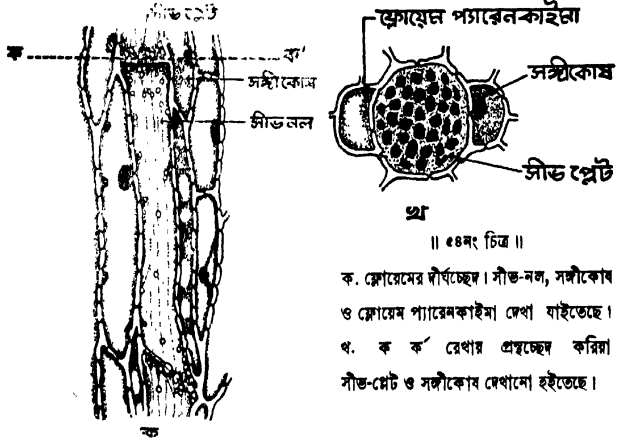 সীভ প্লেট
ক
ক′
সঙ্গীকোষ
সীভ নল
ক
ফ্লোয়েম প্যারেনকাইমা
সঙ্গীকোষ
সীভ প্লেট
খ
॥ ৫৪নং চিত্র ॥
ক. ফ্লোয়েমের দীর্ঘচ্ছেদ। সীভ-নল, সঙ্গীকোষ
ও ফ্লোয়েম প্যারেনকাইমা দেখা যাইতেছে।
খ. ক ক′ রেখায় প্রস্থচ্ছেদ করিয়া
সীভ-প্লেট ও সঙ্গীকোষ দেখানো হইতেছে।